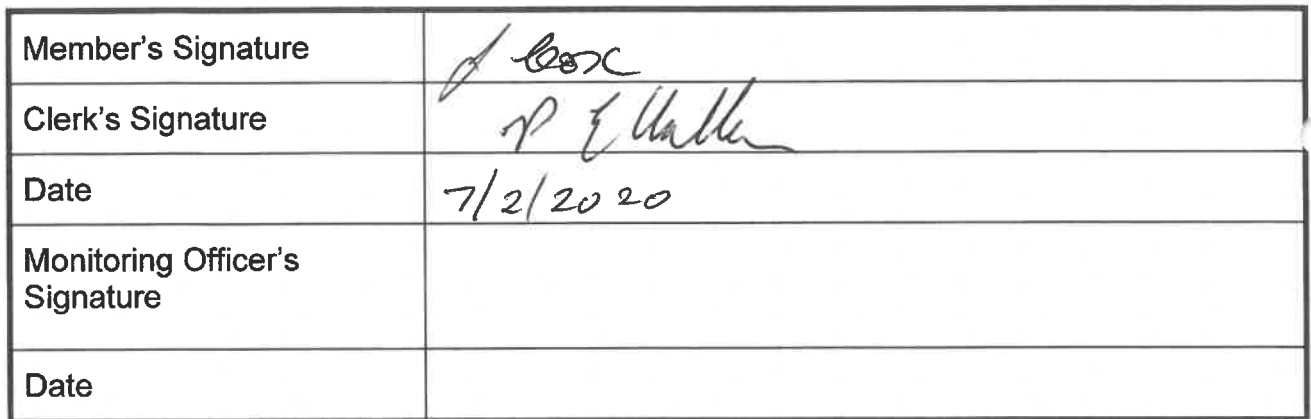 Member's Signature
J Cox
Clerk's Signature
P E
Date
7/2/2020
Monitoring Officer's
Signature
Date